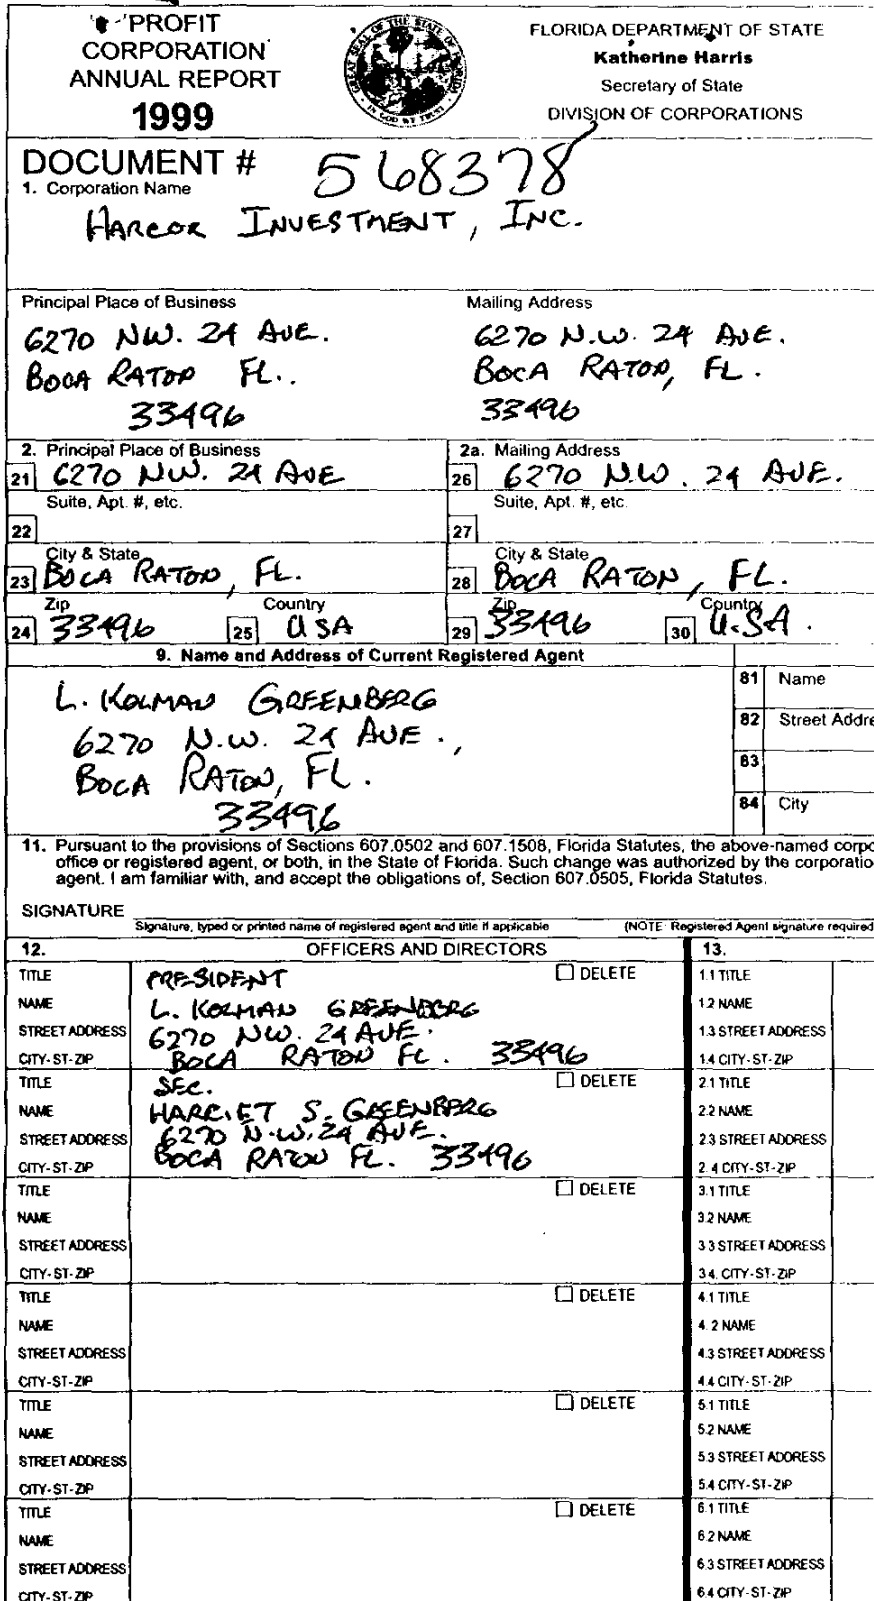 PROFIT
CORPORATION
ANNUAL REPORT
1999
GREAT SEAL OF THE STATE OF FLORIDA
IN GOD WE TRUST
FLORIDA DEPARTMENT OF STATE
Katherine Harris
Secretary of State
DIVISION OF CORPORATIONS
DOCUMENT # 568378
1. Corporation Name
HARCOR INVESTMENT, INC.
Principal Place of Business
6270 NW. 24 AVE.
BOCA RATON FL..
33496
Mailing Address
6270 N.W. 24 AVE.
BOCA RATON, FL.
33496
2. Principal Place of Business
21 6270 NW. 24 AVE
2a. Mailing Address
26 6270 N.W. 24 AVE.
Suite, Apt. #, etc.
22
Suite, Apt. #, etc.
27
City & State
23 BOCA RATON, FL.
City & State
28 BOCA RATON, FL.
Zip
24 33496
Country
25 USA
Zip
29 33496
Country
30 U.S.A.
9. Name and Address of Current Registered Agent
L. KOLMAN GREENBERG
6270 N.W. 24 AVE.,
BOCA RATON, FL.
33496
81 Name
82 Street Addre
83
84 City
11. Pursuant to the provisions of Sections 607.0502 and 607.1508, Florida Statutes, the above-named corpo
office or registered agent, or both, in the State of Florida. Such change was authorized by the corporatio
agent. I am familiar with, and accept the obligations of, Section 607.0505, Florida Statutes.
SIGNATURE
Signature, typed or printed name of registered agent and title if applicable
(NOTE: Registered Agent signature required
12. OFFICERS AND DIRECTORS
13.
TITLE PRESIDENT DELETE
NAME L. KOLMAN GREENBERG
STREET ADDRESS 6270 NW. 24 AVE.
CITY-ST-ZIP BOCA RATON FL. 33496
1.1 TITLE
1.2 NAME
1.3 STREET ADDRESS
1.4 CITY-ST-ZIP
TITLE SEC. DELETE
NAME HARRIET S. GREENBERG
STREET ADDRESS 6270 N.W. 24 AVE.
CITY-ST-ZIP BOCA RATON FL. 33496
2.1 TITLE
2.2 NAME
2.3 STREET ADDRESS
2.4 CITY-ST-ZIP
TITLE DELETE
NAME
STREET ADDRESS
CITY-ST-ZIP
3.1 TITLE
3.2 NAME
3.3 STREET ADDRESS
3.4. CITY-ST-ZIP
TITLE DELETE
NAME
STREET ADDRESS
CITY-ST-ZIP
4.1 TITLE
4.2 NAME
4.3 STREET ADDRESS
4.4 CITY-ST-ZIP
TITLE DELETE
NAME
STREET ADDRESS
CITY-ST-ZIP
5.1 TITLE
5.2 NAME
5.3 STREET ADDRESS
5.4 CITY-ST-ZIP
TITLE DELETE
NAME
STREET ADDRESS
CITY-ST-ZIP
6.1 TITLE
6.2 NAME
6.3 STREET ADDRESS
6.4 CITY-ST-ZIP